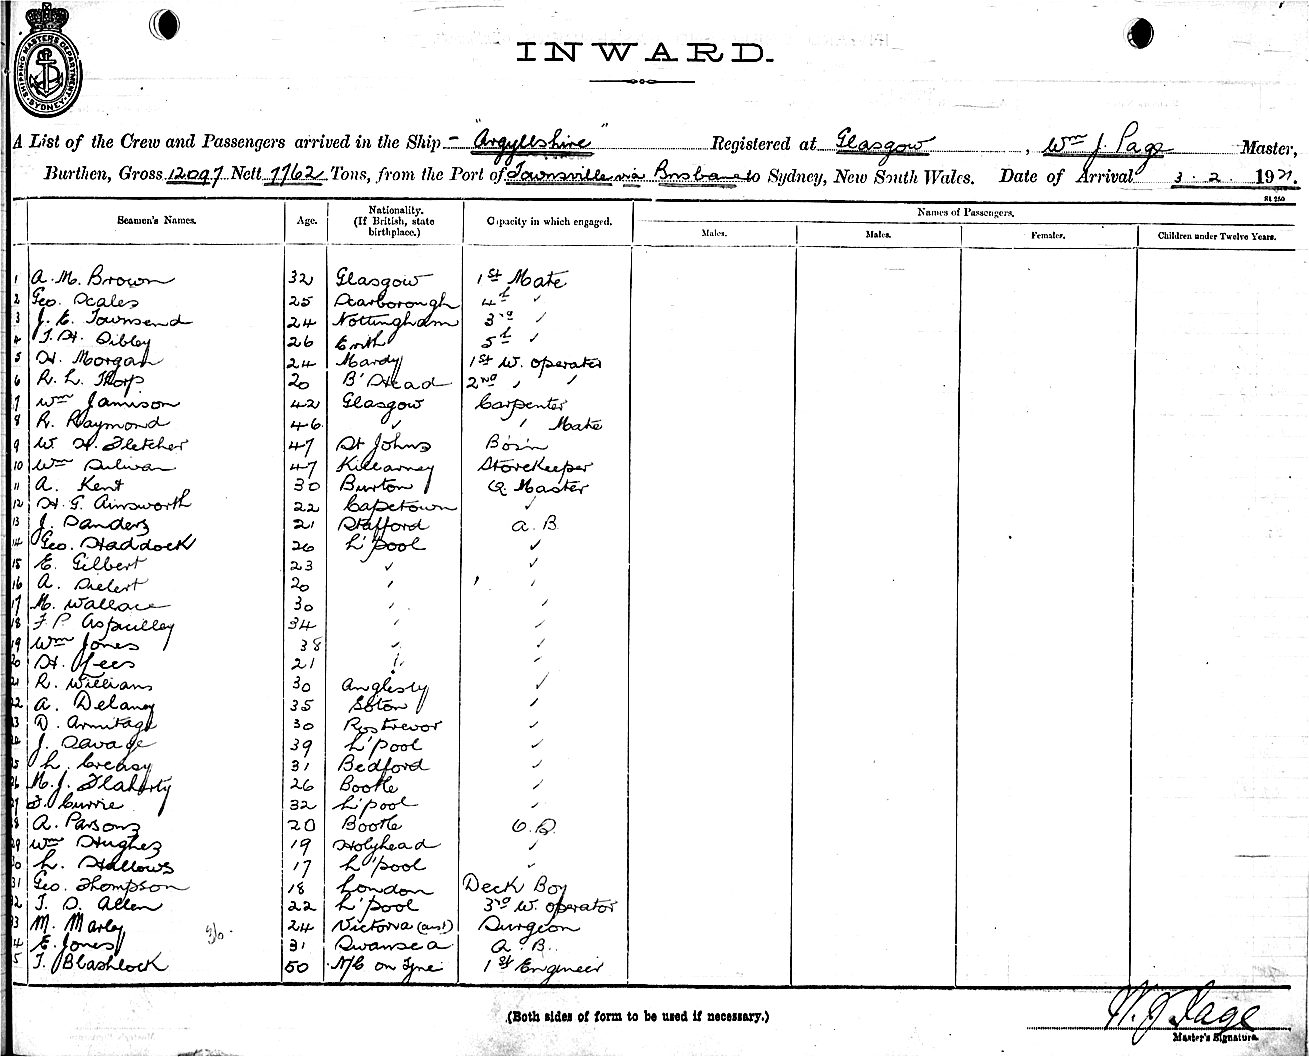 SHIPPING MASTER'S DEPARTMENT SYDNEY
INWARD.
A List of the Crew and Passengers arrived in the Ship "Argyllshire" Registered at Glasgow, Wm J. Page Master,
Burthen, Gross 12097 Nett 7762 Tons, from the Port of Townsville via Brisbane to Sydney, New South Wales. Date of Arrival 3.2.1921.
Seamen's Names. Age. Nationality. (If British, state birthplace.) Capacity in which engaged. Names of Passengers.
Males. Males. Females. Children under Twelve Years.
1 A. M. Brown 32 Glasgow 1st Mate
2 Geo. Scales 25 Scarborough 4th "
3 J. E. Townsend 24 Nottingham 3rd "
4 T. H. Sibley 26 Erith 5th "
5 H. Morgan 24 Mardy 1st W. operator
6 R. L. Thorp 20 B'Head 2nd " "
7 Wm Jamison 42 Glasgow Carpenter
8 R. Raymond 46 " " Mate
9 W. H. Fletcher 47 St Johns Bosin
10 Wm Sulivan 47 Killarney StoreKeeper
11 A. Kent 30 Burton Q Master
12 H. G. Ainsworth 22 Capetown "
13 J. Sanders 21 Stafford A. B
14 Geo. Haddock 26 L'pool "
15 E. Gilbert 23 " "
16 A. 20 " "
17 M. Wallace 30 " "
18 F. P. 34 " "
19 Wm Jones 38 " "
20 H. 21 " "
21 R. Williams 30 Anglesey "
22 A. Delaney 35 Soton "
23 D. Armitage 30 Rostrevor "
24 J. Savage 39 L'pool "
25 L. Creasy 31 Bedford "
26 M. J. Flaherty 26 Bootle "
27 J. Currie 32 L'pool "
28 A. Parsons 20 Bootle O. S.
29 Wm Hughes 19 Holyhead "
30 L. Hallows 17 L'pool "
31 Geo. Thompson 18 London Deck Boy
32 T. S. Allen 22 L'pool 3rd W. operator
33 M. Marley 24 Victoria (Aust) Surgeon
34 E. Jones 31 Swansea A. B.
35 T. Blashlock 50 N/C on Tyne 1st Engineer
(Both sides of form to be used if necessary.)
W. J. Page
Master's Signature.